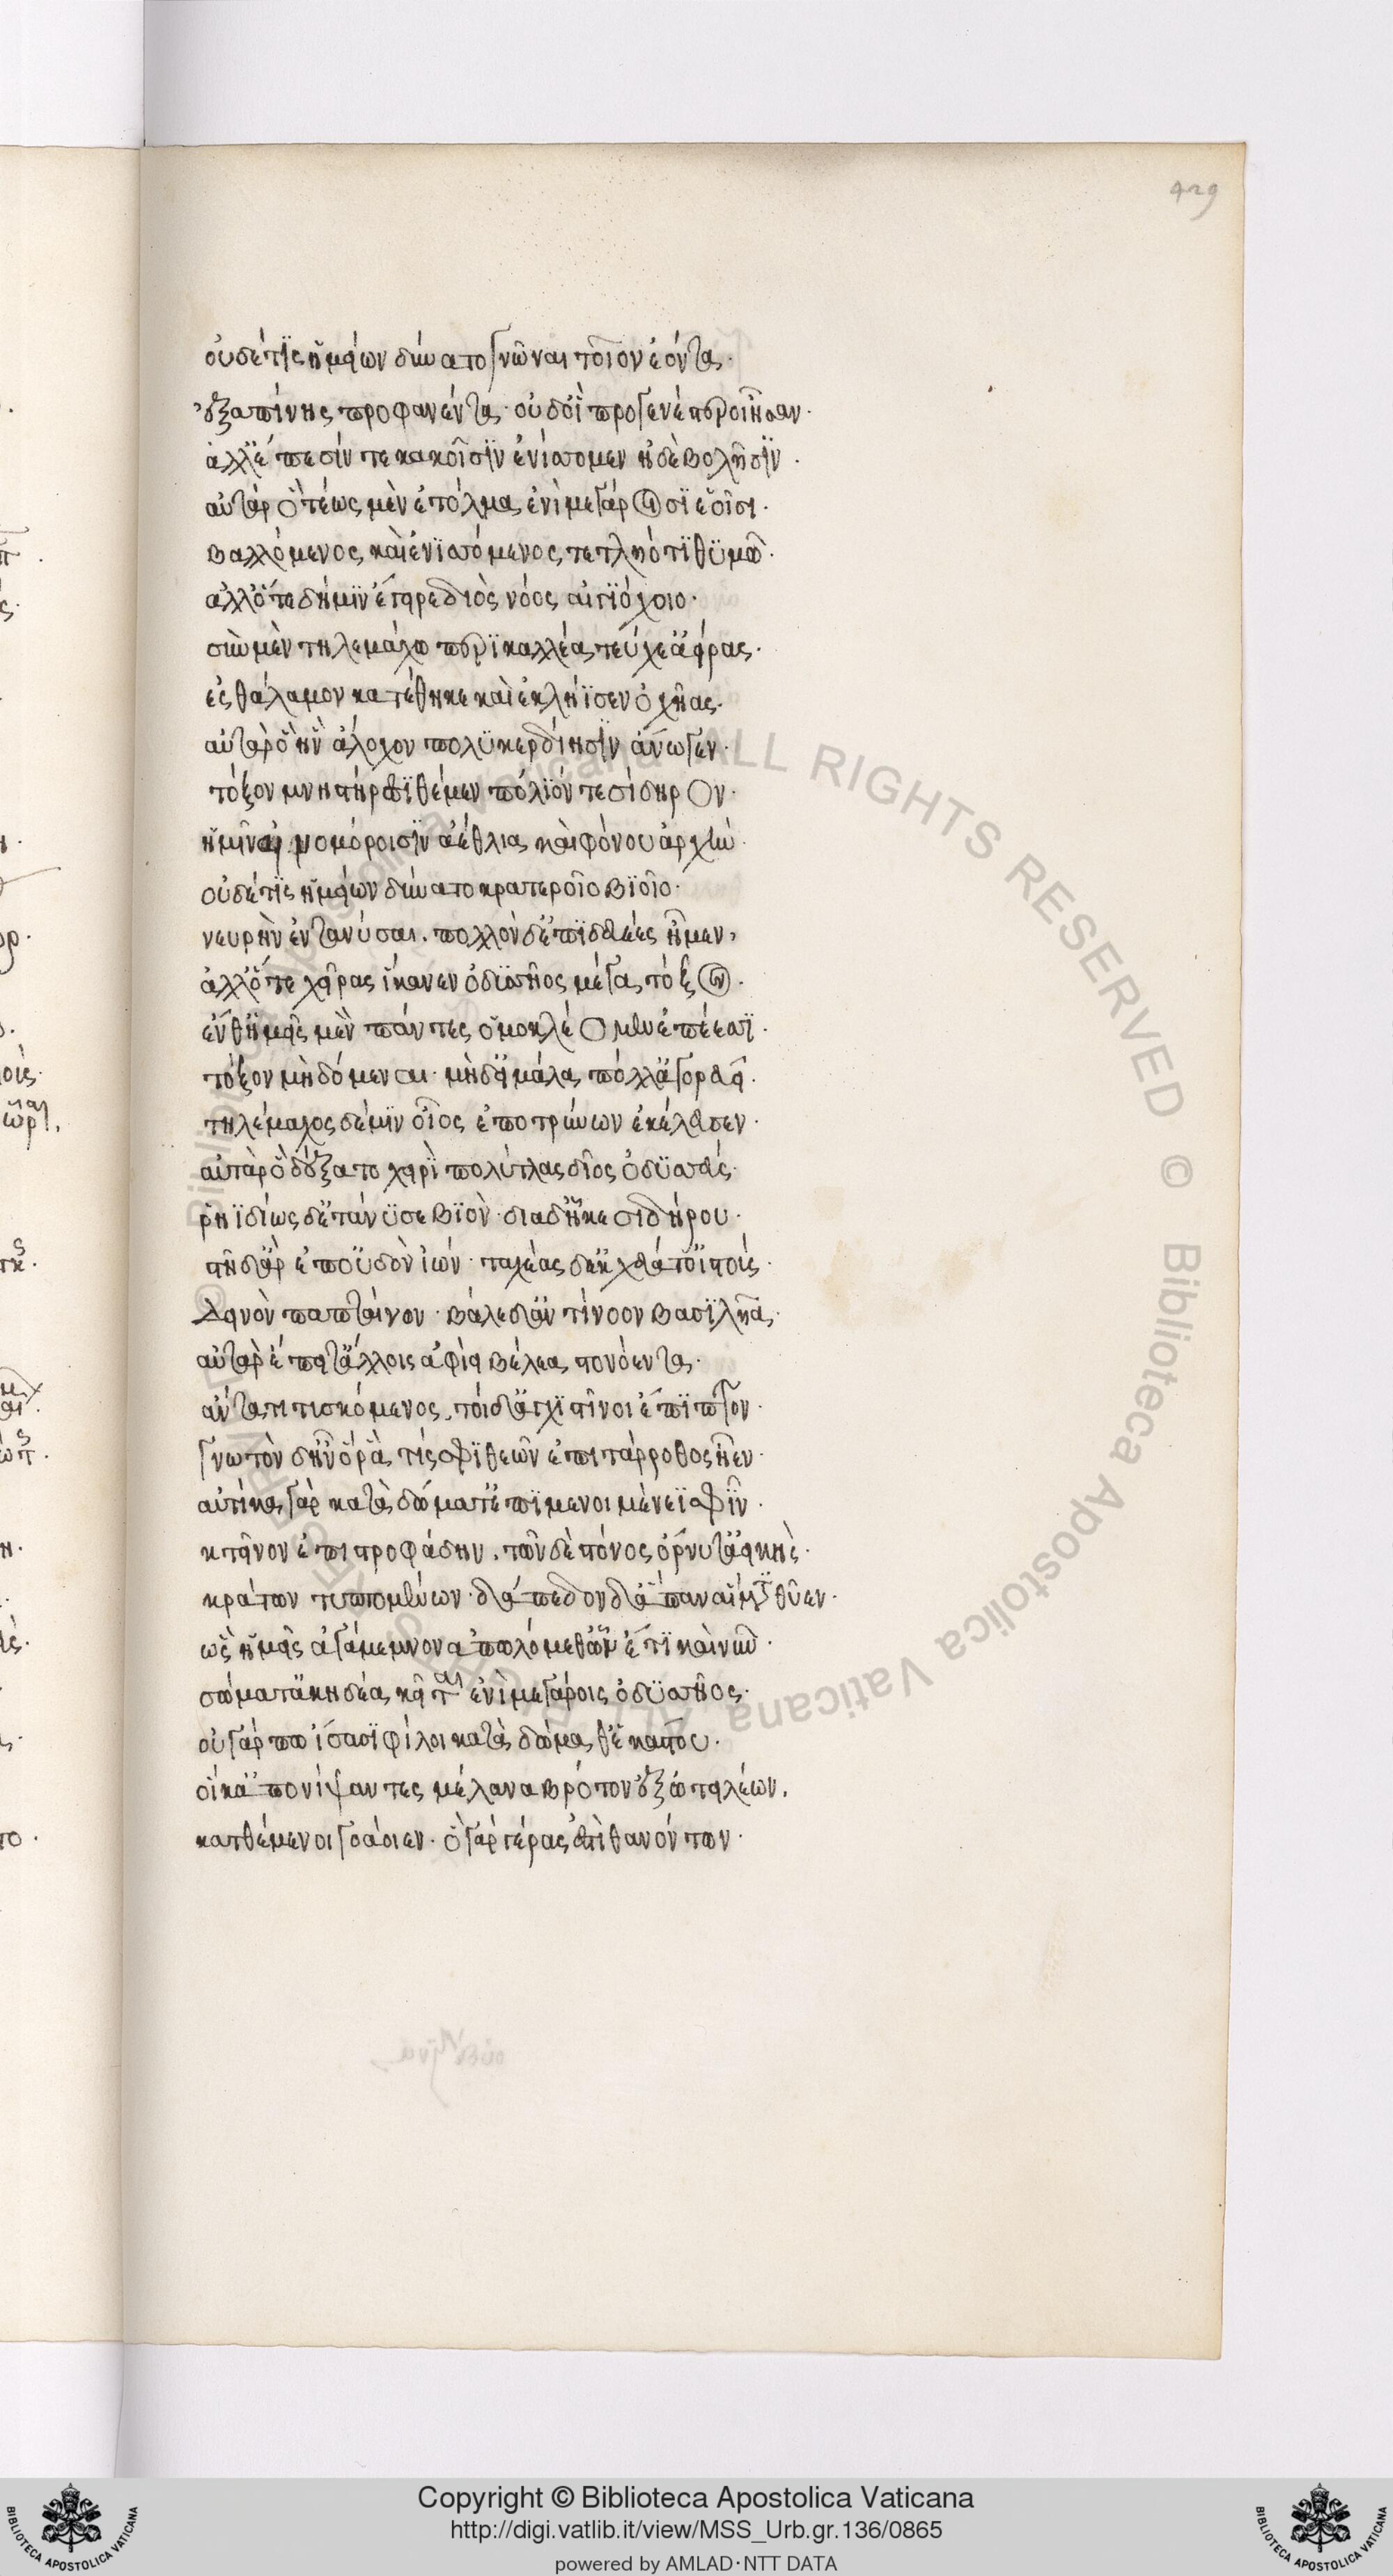 429
οὐδέ τις ἡμείων δύνατο γνῶναι τὸν ἐόντα·
ἐξαπίνης προφανέντα· οὐδ' οἳ προγενέστεροι ἦσαν·
ἀλλ' ἔπεσίν τε κακοῖσιν ἐνίπτομεν ἠδὲ βολῇσιν·
αὐτὰρ ὃ τέως μὲν ἐτόλμα ἐνὶ μεγάροισι ἑοῖσι·
βαλλόμενος καὶ ἐνιπτόμενος τετληότι θυμῷ·
ἀλλ' ὅτε δή μιν ἔγειρε διὸς νόος αἰγιόχοιο·
σὺν μὲν τηλεμάχῳ περικαλλέα τεύχε' ἀείρας·
ἐς θάλαμον κατέθηκε καὶ ἐκλήϊσεν ὀχῆας·
αὐτὰρ ὃ ἣν ἄλοχον πολυκερδίῃσιν ἄνωγεν·
τόξον μνηστήρεσσι θέμεν πολιόν τε σίδηρον·
ἡμῖν αἰνομόροισιν ἀέθλια καὶ φόνου ἀρχήν·
οὐδέ τις ἡμείων δύνατο κρατεροῖο βιοῖο·
νευρὴν ἐντανύσαι· πολλὸν δ' ἐπιδευέες ἦμεν·
ἀλλ' ὅτε χεῖρας ἵκανεν ὀδυσσῆος μέγα τόξον·
ἔνθ' ἡμεῖς μὲν πάντες ὁμοκλέομεν ἐπέεσσι·
τόξον μὴ δόμεναι· μηδ' εἰ μάλα πόλλ' ἀγορεύει·
τηλέμαχος δέ μιν οἶος ἐποτρύνων ἐκέλευσεν·
αὐτὰρ ὃ δέξατο χειρὶ πολύτλας δῖος ὀδυσσεύς·
ῥηϊδίως δ' ἐτάνυσε βιὸν· διὰ δ' ἧκε σιδήρου·
στῆ δ' ἄρ ἐπ' οὐδὸν ἰών· ταχέας δ' ἐκχεύατ' ὀϊστούς·
δεινὸν παπταίνων· βάλε δ' ἀντίνοον βασιλῆα·
αὐτὰρ ἔπειτ' ἄλλοις ἀφίει βέλεα στονόεντα·
ἄντα τιτυσκόμενος· τοὶ δ' ἀγχιστῖνοι ἔπιπτον·
γνωτὸν δ' ἦν ὅ ῥά τίς σφι θεῶν ἐπιτάρροθος ἦεν·
αὐτίκα γὰρ κατὰ δώματ' ἐπισπόμενοι μένεϊ σφῷν·
κτεῖνον ἐπιστροφάδην· τῶν δὲ στόνος ὄρνυτ' ἀεικής·
κράτων τυπτομένων· δάπεδον δ' ἅπαν αἵματι θῦεν·
ὣς ἡμεῖς ἀγάμεμνον ἀπωλόμεθ' ὧν ἔτι καὶ νῦν·
σώματ' ἀκηδέα κεῖται ἐνὶ μεγάροις ὀδυσσῆος·
οὐ γάρ πω ἴσασι φίλοι κατὰ δώμαθ' ἑκάστου·
οἵ κ' ἀπονίψαντες μέλανα βρότον ἐξ ὠτειλέων·
κατθέμενοι γοάοιεν· ὃ γὰρ γέρας ἐστὶ θανόντων·
Copyright © Biblioteca Apostolica Vaticana
http://digi.vatlib.it/view/MSS_Urb.gr.136/0865
powered by AMLAD·NTT DATA